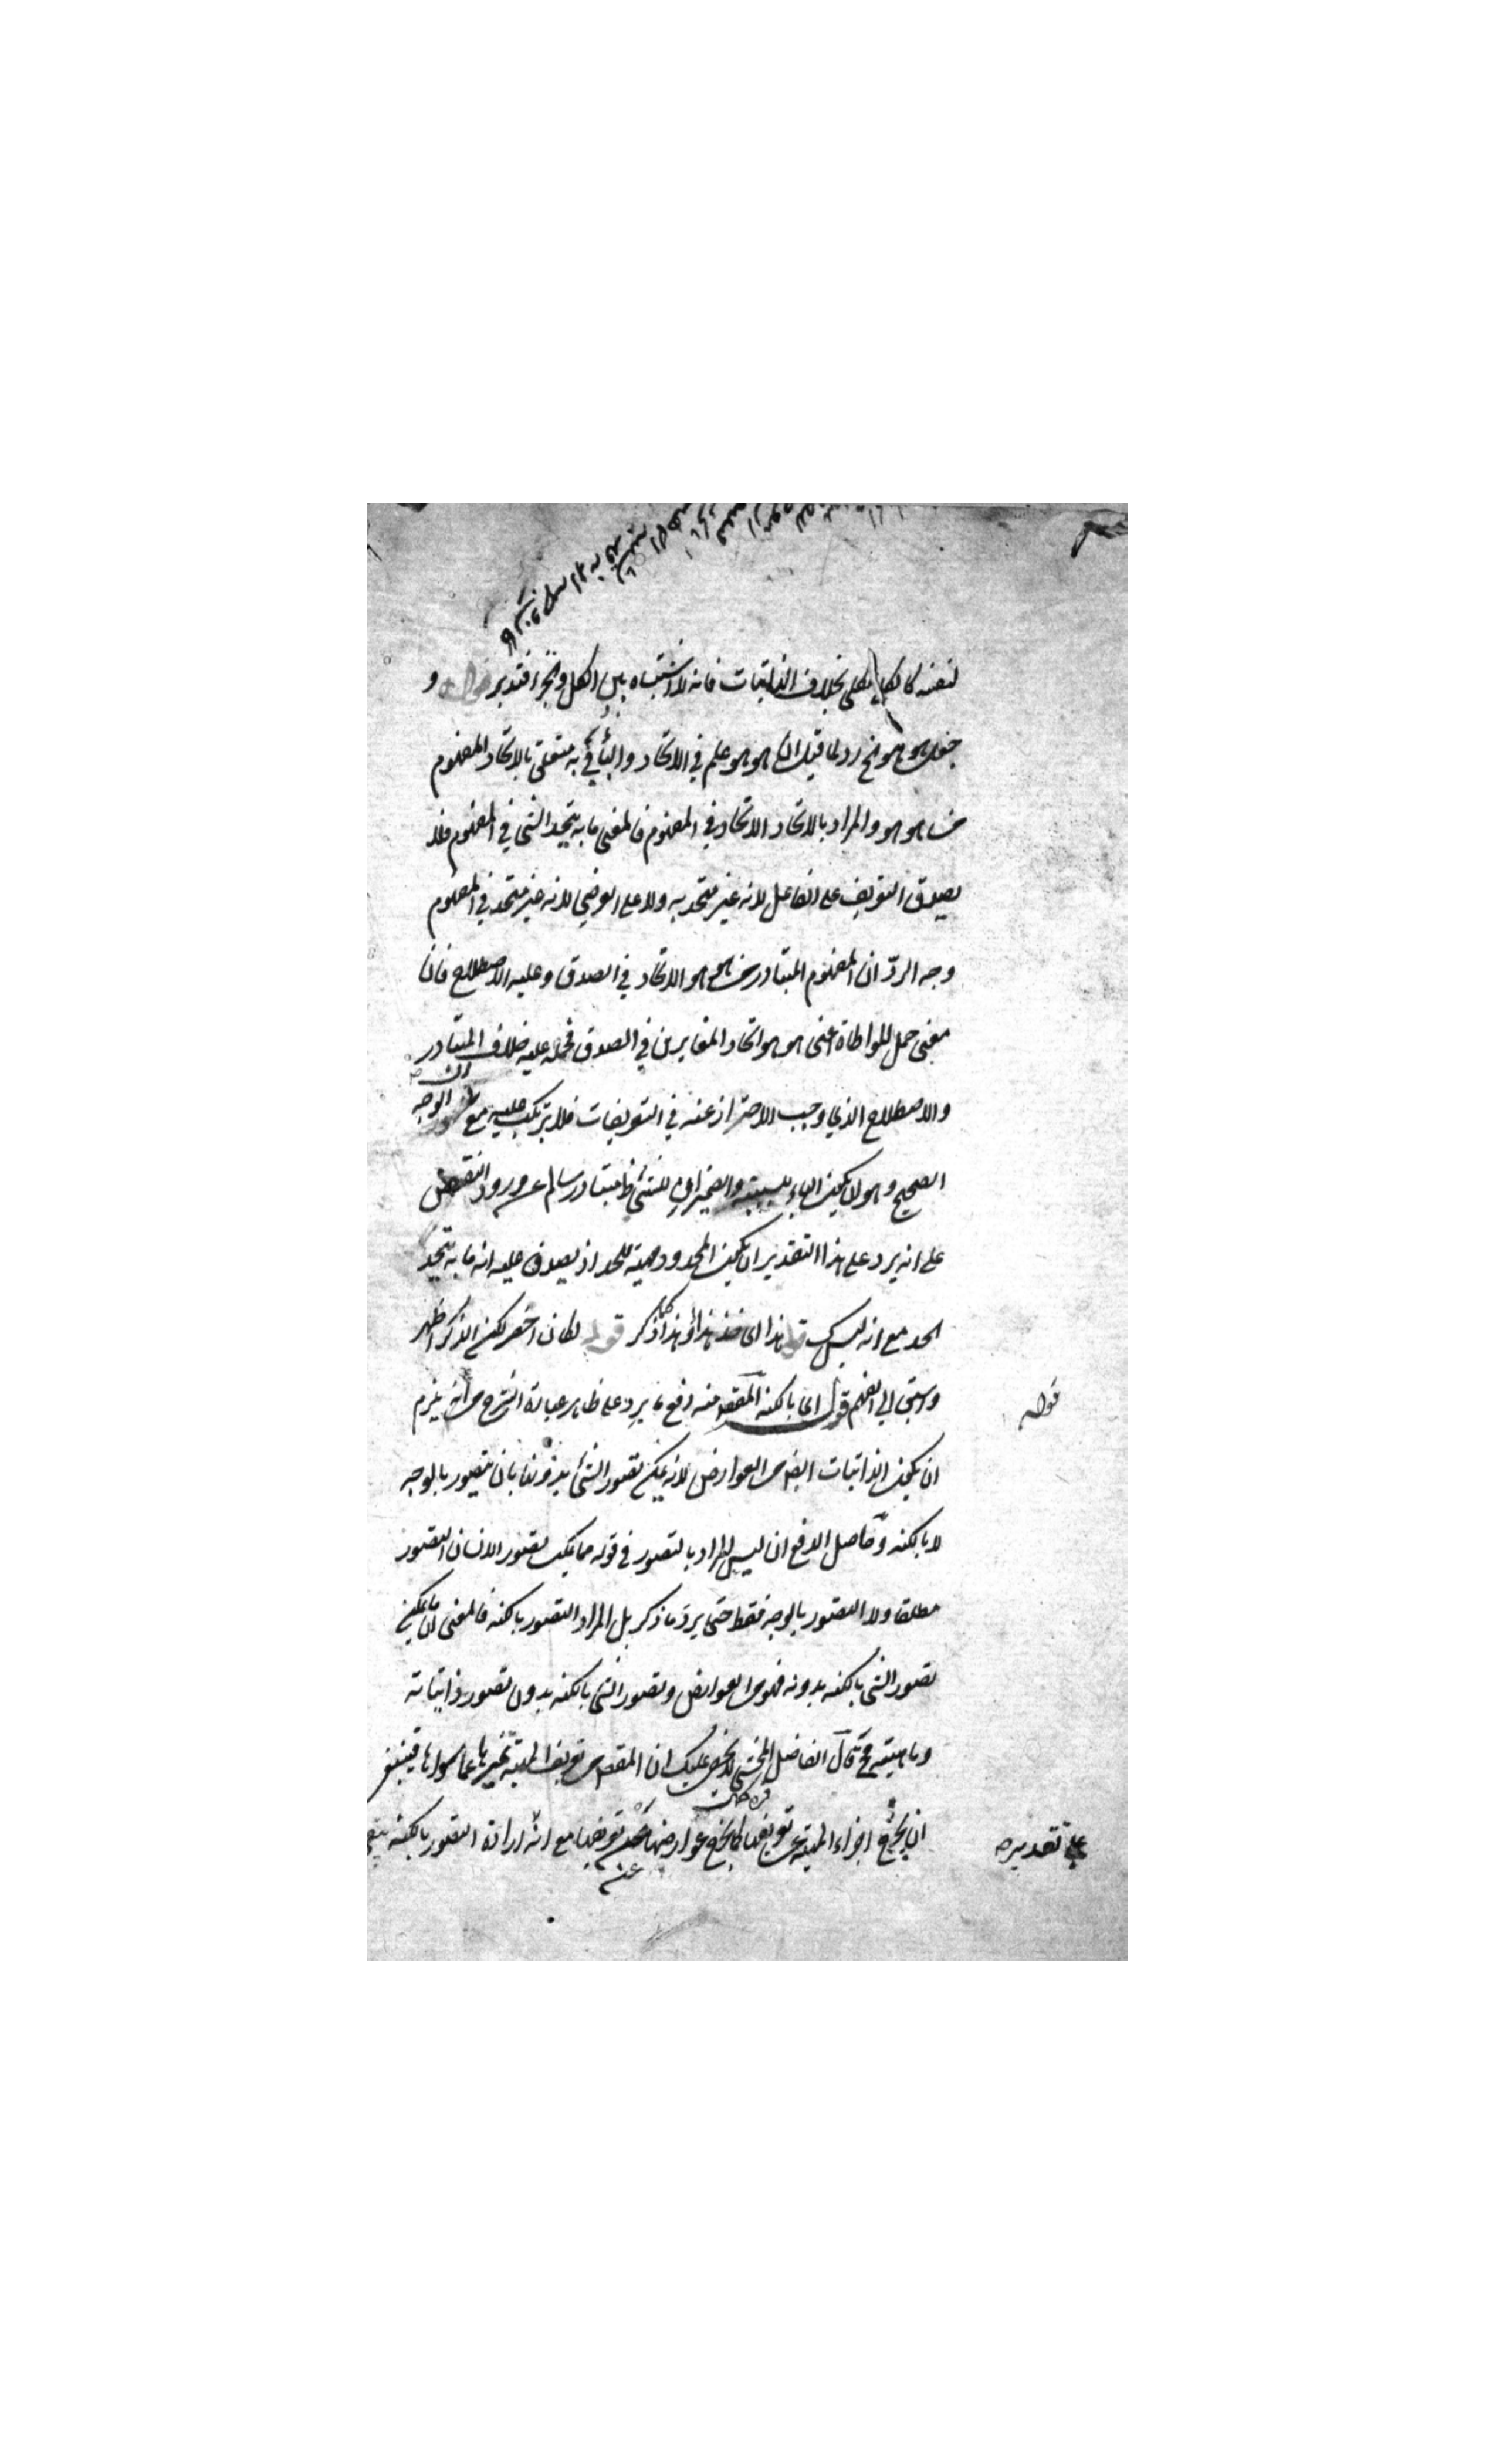 لنفسه كالكلى بخلاف الذاتيات فانه لا اشتباه بين الكل والجزء فتدبر قوله و
جعل هو هو الخ رد لما قيل ان هو هو علم في الاتحاد والباء في به متعلق بالاتحاد المفهوم
من هو هو والمراد بالاتحاد الاتحاد في المفهوم فالمعنى ما به يتحد الشئ في المفهوم فلا
يصدق التعريف على الفاعل لانه غير متحد به ولا على العرضي لانه غير متحد في المفهوم
وجه الردّ ان المفهوم المتبادر من هو هو الاتحاد في الصدق وعليه الاصطلاح فان
معنى حمل المواطاة اعنى هو هو اتحاد المتغايرين في الصدق فحمله عليه خلاف المتبادر
والاصطلاح الذي وجب الاحتراز عنه في التعريفات فلا يرتكب عليه مع ان الوجه
الصحيح وهو ان يكون الباء للسببية والضميران للشئ متبادر سالم عن ورود النقض
على انه يرد على هذا التقدير ان يكون المحدود ماهية للحد اذ يصدق عليه انه ما به يتحد
الحد مع انه ليس كذلك هذا اى خذ هذا او هذا كما ذكر قوله لكان اخصر لكن الذكر اظهر
واسبق الى الفهم قوله اى بالكنه المقصود منه دفع ما يرد على ظاهر عبارة الشرح من انه يلزم
قوله
ان يكون الذاتيات ايضا من العوارض لانه يمكن تصور الشئ بدونها بان يتصور بالوجه
لا بالكنه وحاصل الدفع ان ليس المراد بالتصور في قوله مما يمكن تصور الانسان التصور
مطلقا ولا التصور بالوجه فقط حتى يرد ما ذكر بل المراد التصور بالكنه فالمعنى ان ما يمكن
تصور الشئ بالكنه بدونه فهو من العوارض وتصور الشئ بالكنه بدون تصور ذاتياته
وماهيته مح قال الفاضل المحشى لا يخفى عليك ان المقصود من تعريف الماهية تمييزها عما سواها فينبغى
ان يخرج اجزاء الماهية عن تعريفها كما يخرج عوارضها عن تعريفها مع ان ارادة التصور بالكنه
على تقديره